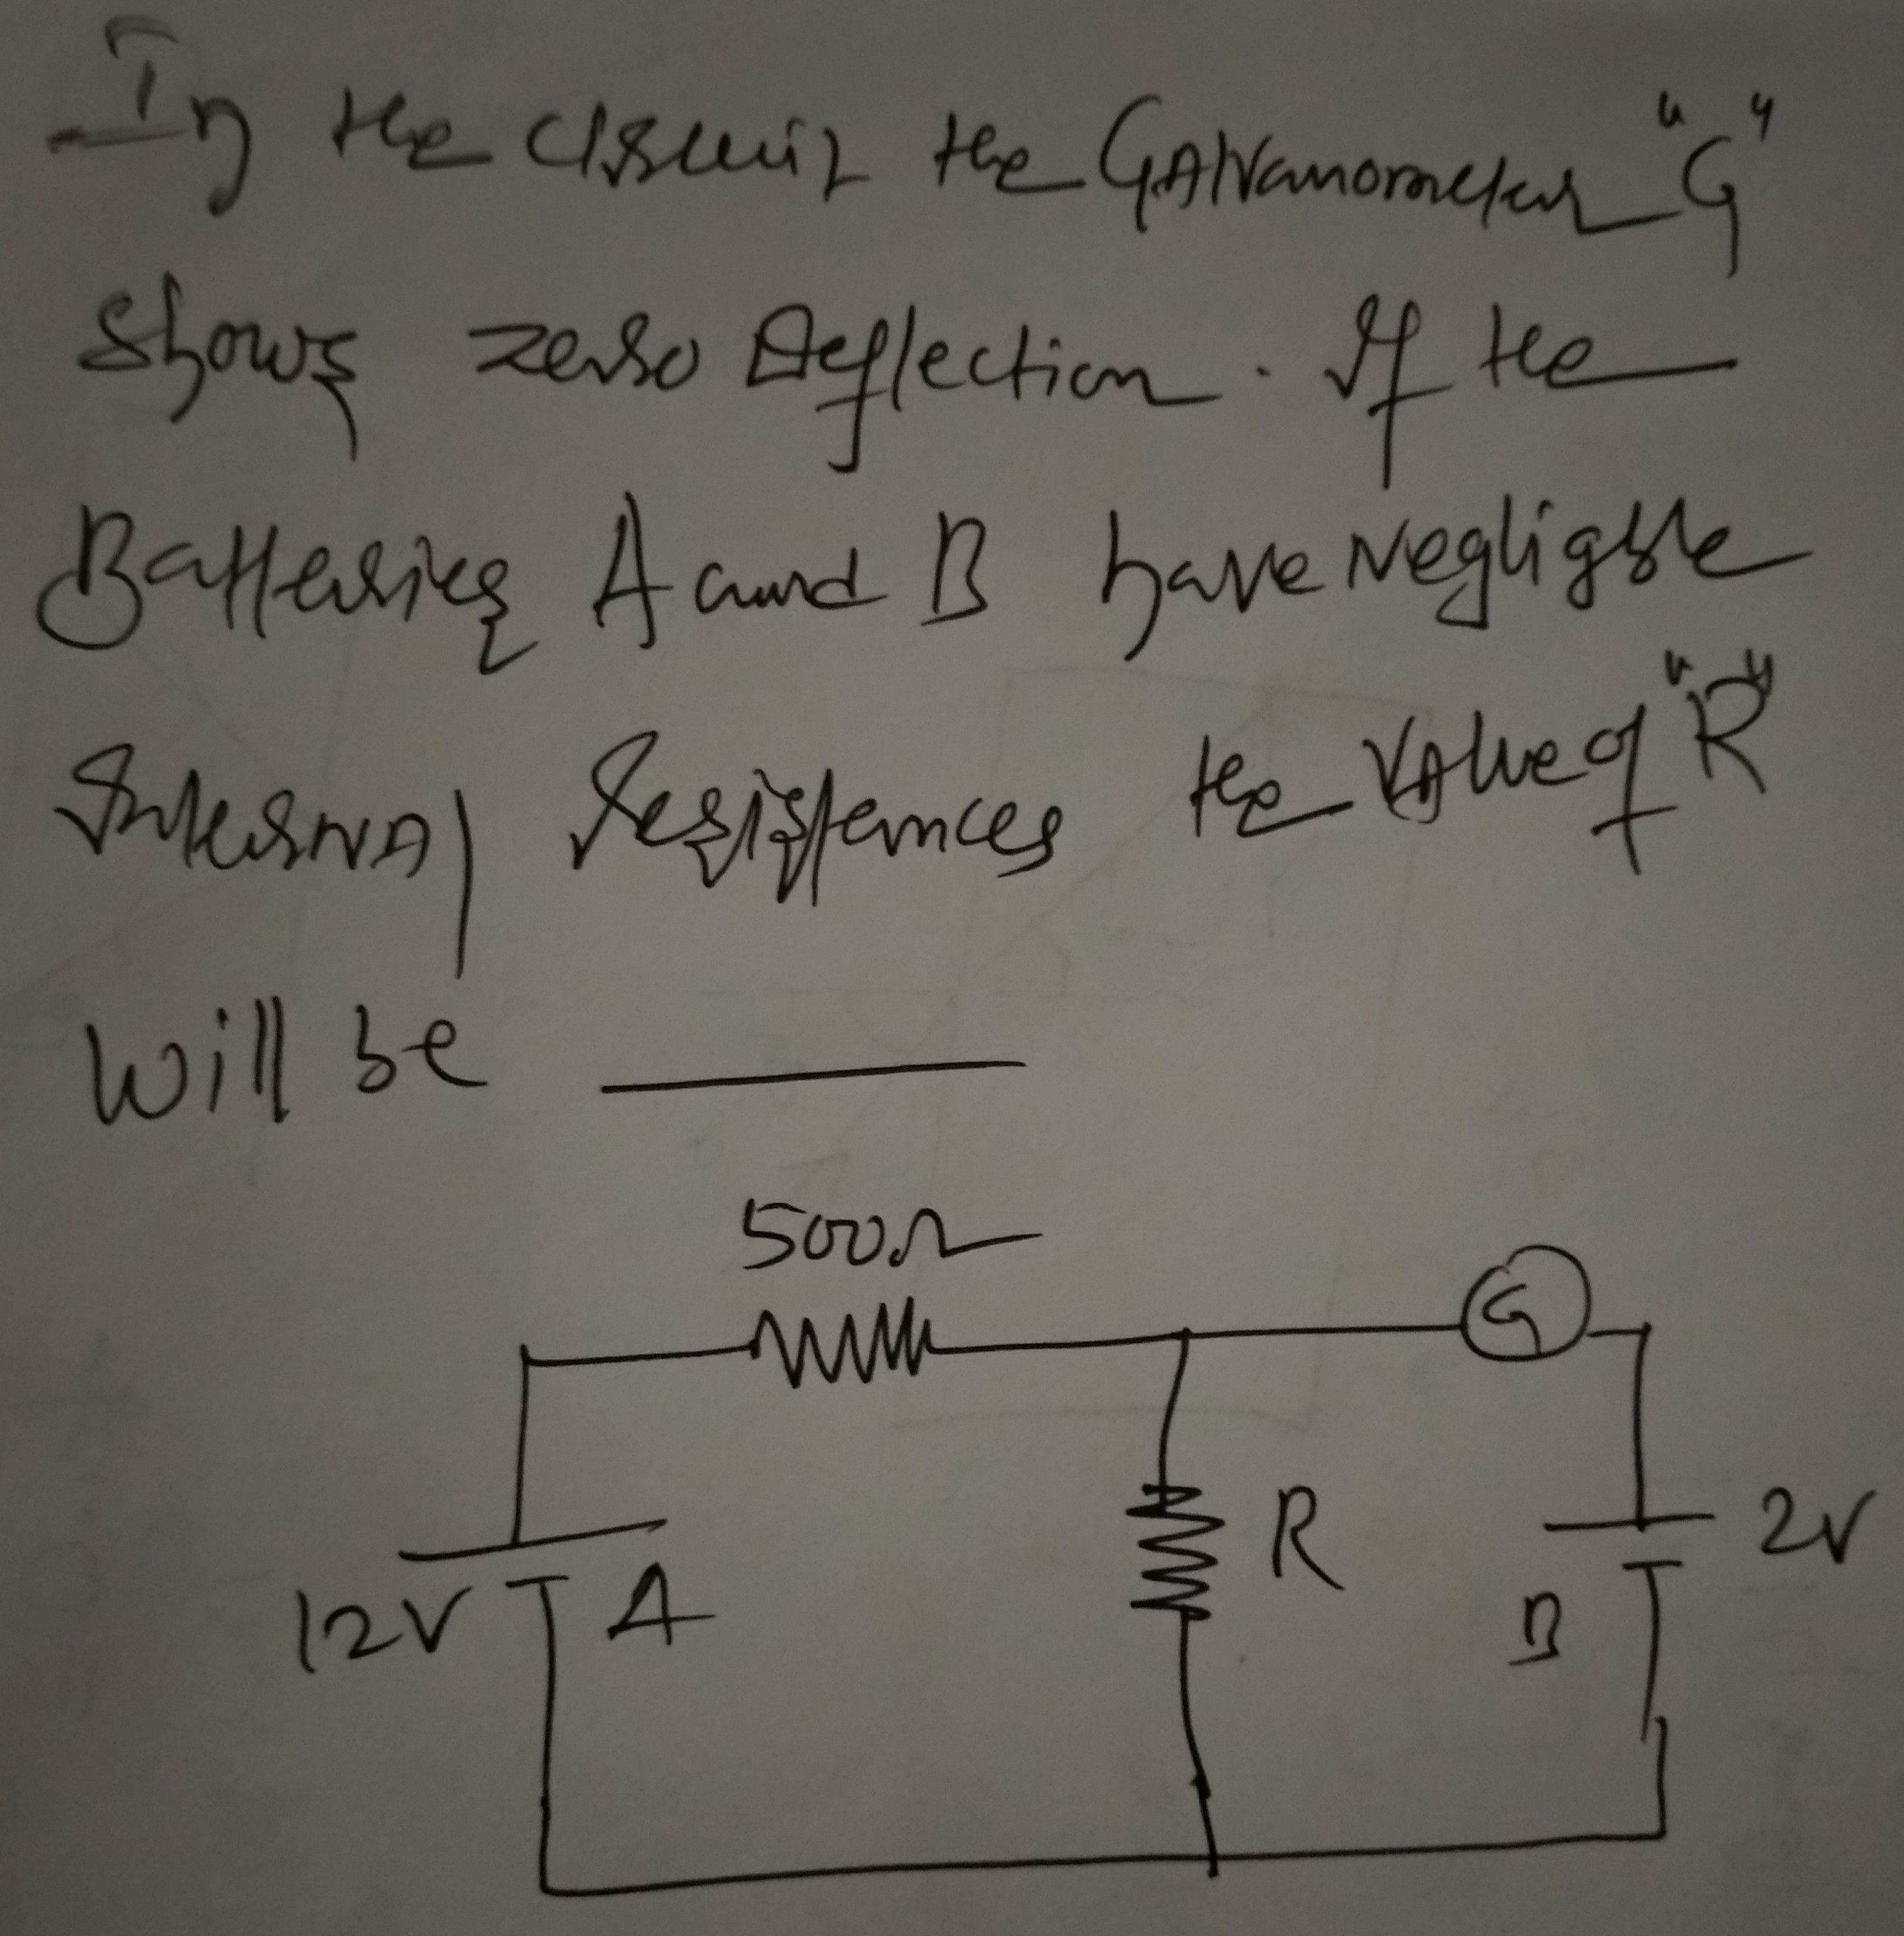 In the circuit the GAlvanometer "G"
shows zero Deflection. If the
Batteries A and B have Negligble
InternAl resistences the VAlue of "R"
Will be ______
500Ω
G
R
2V
12V
A
B